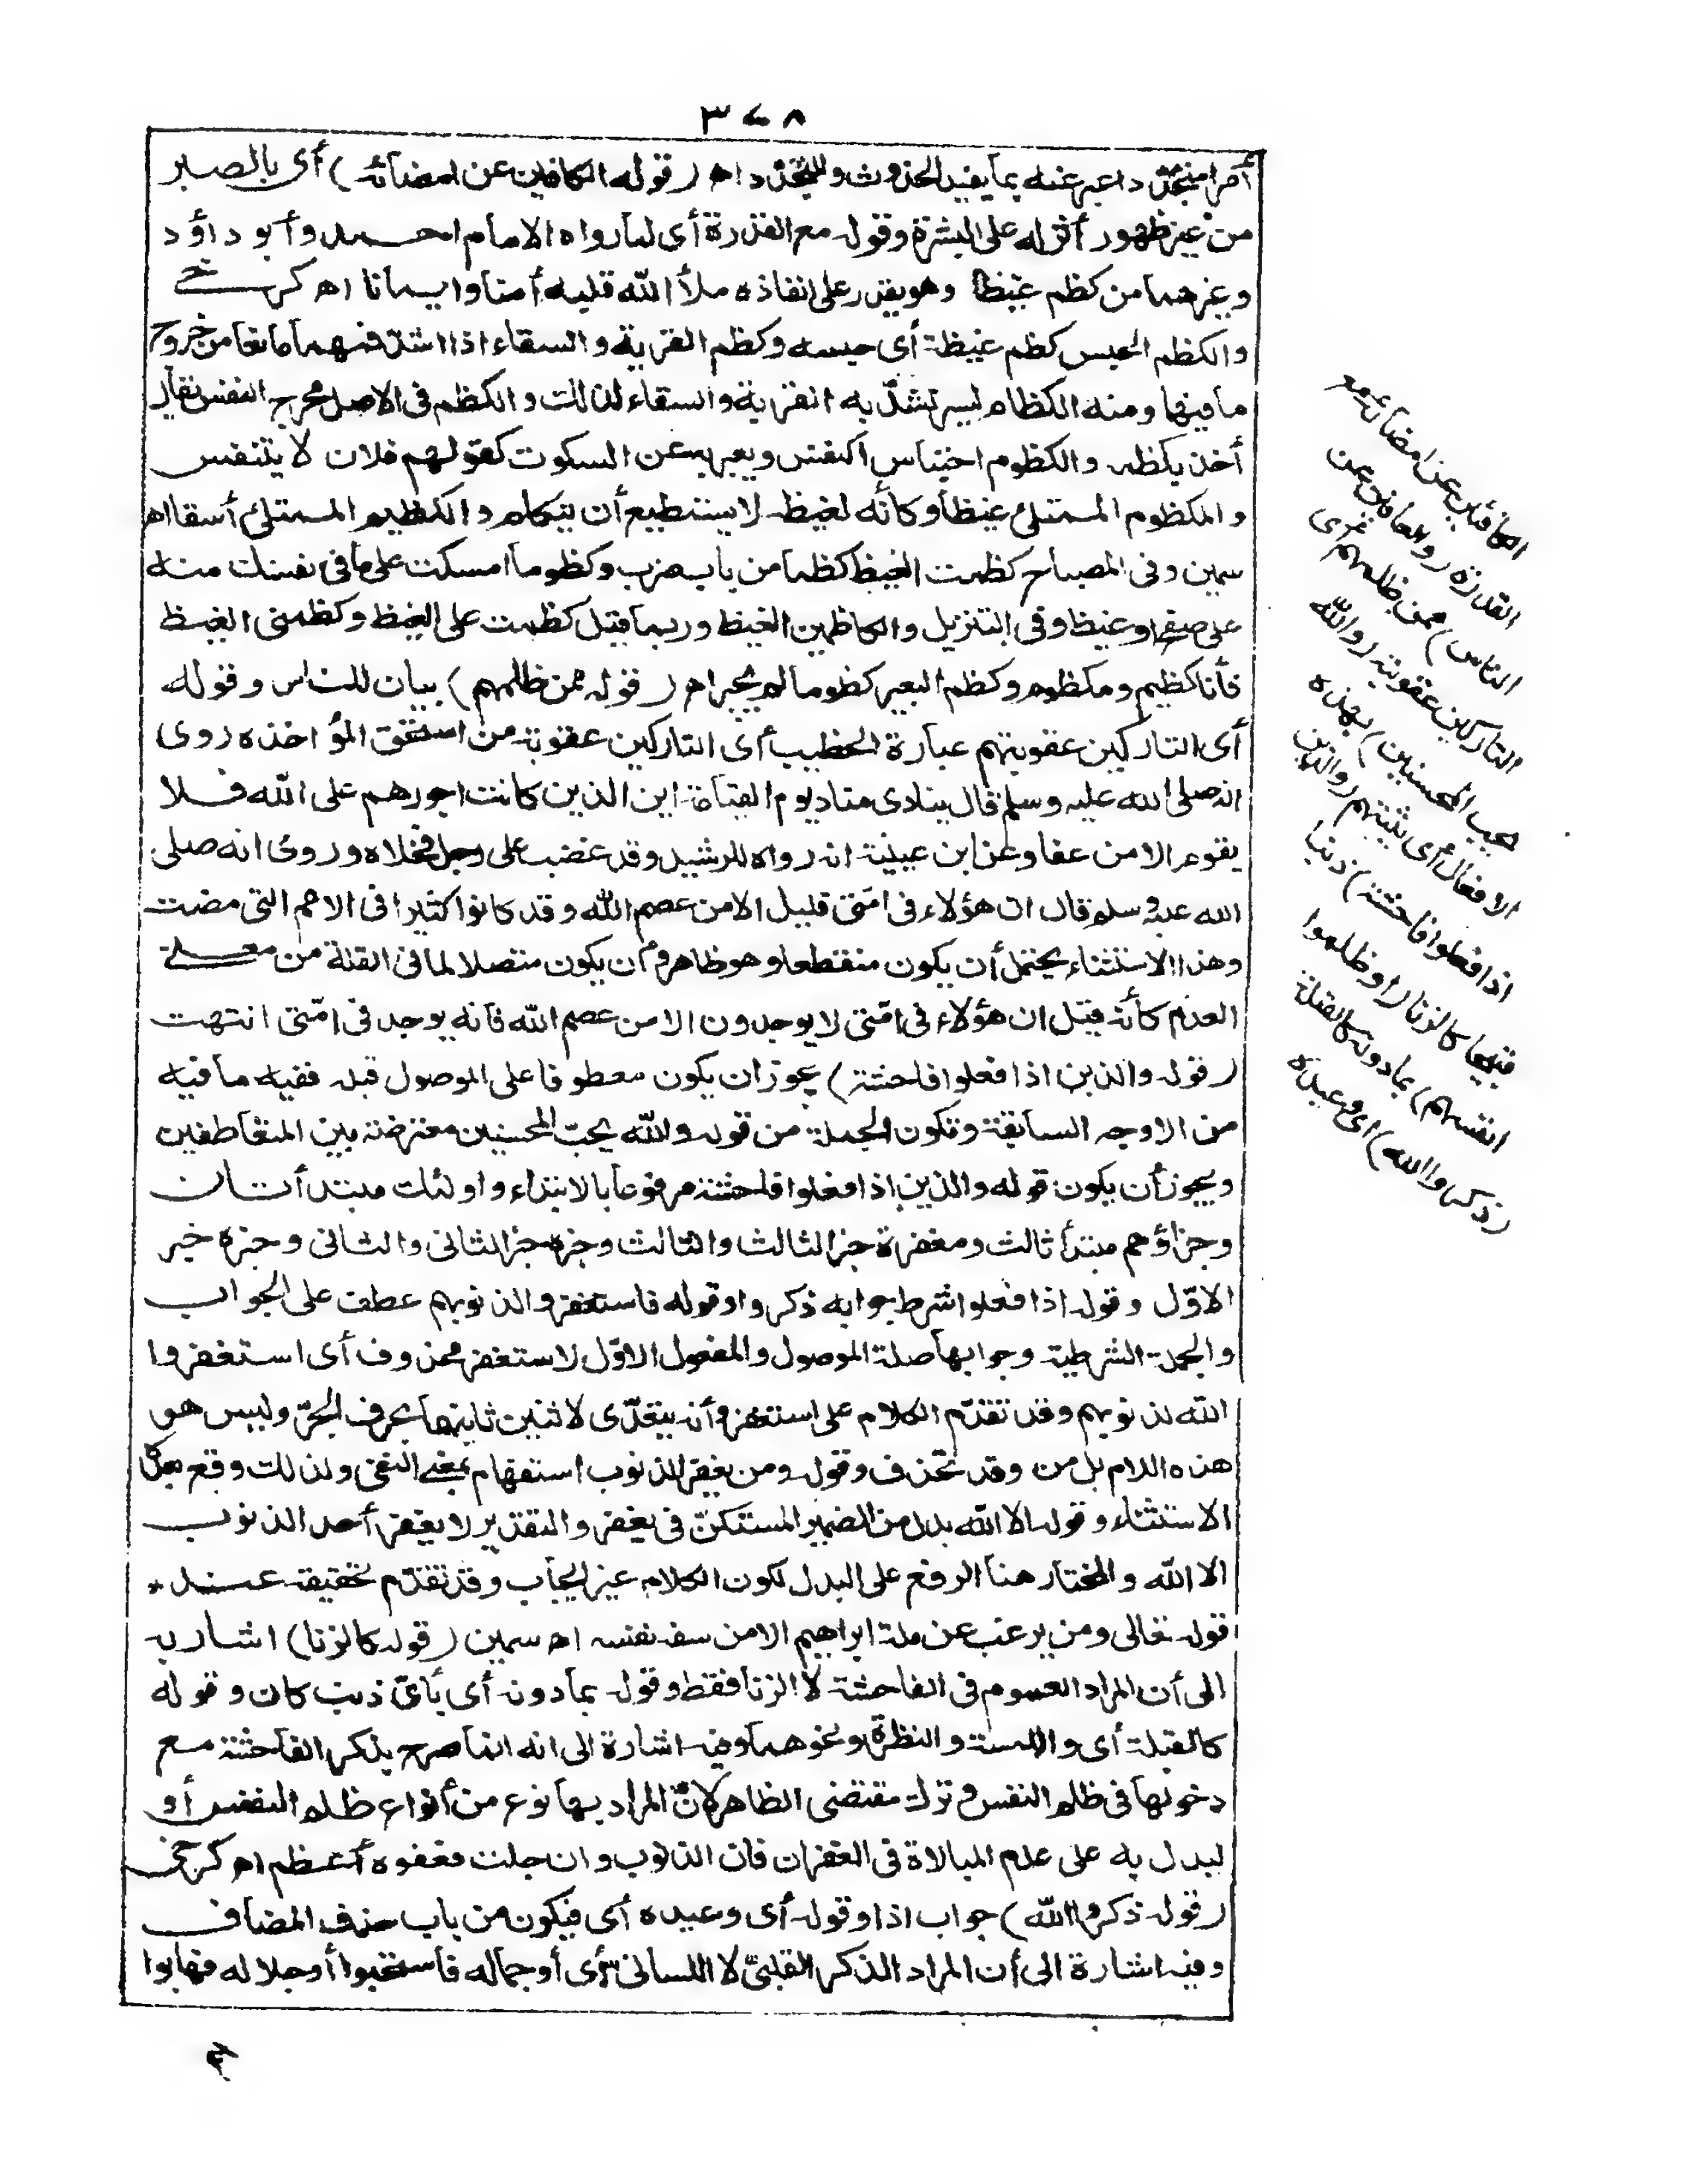 ٣٧٨
أمرا متجدّدا عبر عنه بما يفيد الحدوث والتجدّد اه (قوله الكافين عن امضائه) أى بالصبر
من غير ظهور أثر له على البشرة وقوله مع القدرة أى لما رواه الامام احمد وأبو داؤد
وغيرهما من كظم غيظا وهو يقدر على انفاذه ملأ الله قلبه أمنا وايمانا اه كرخى
والكظم الحبس كظم غيظه أى حبسه وكظم القربة والسقاء اذا اشدّ فمهما مانعا من خروج
ما فيها ومنه الكظام لسير تشدّ به القربة والسقاء لذلك والكظم فى الاصل مخرج النفس يقال
أخذ بكظمه والكظوم احتباس النفس ويعبر به عن السكوت كقولهم فلان لا يتنفس
والمكظوم الممتلئ غيظا وكأنه لغيظه لا يستطيع أن يتكلم والكظيم الممتلئ أسفا اه
سمين وفى المصباح كظمت الغيظ كظما من باب ضرب وكظوما امسكت على ما فى نفسك منه
على صفح او غيظ وفى التنزيل والكاظمين الغيظ وربما قيل كظمت على الغيظ وكظمنى الغيظ
فأنا كظيم ومكظوم وكظم البعير كظوما لم يجتر اه (قوله ممن ظلمهم) بيان للناس وقوله
أى التاركين عقوبتهم عبارة الخطيب أى التاركين عقوبة من استحق المؤاخذه روى
انه صلى الله عليه وسلم قال ينادى مناد يوم القيامة اين الذين كانت اجورهم على الله فلا
يقوم الا من عفا وعن ابن عيينة انه رواه للرشيد وقد غضب على رجل فخلاه وروى انه صلى
الله عليه وسلم قال ان هؤلاء فى امّتى قليل الا من عصم الله وقد كانوا كثيرا فى الامم التى مضت
وهذا الاستثناء يحتمل أن يكون منقطعا وهو ظاهر وأن يكون متصلا لما فى القلة من معنى
العدم كأنه قيل ان هؤلاء فى امّتى لا يوجدون الا من عصم الله فانه يوجد فى امّتى انتهت
(قوله والذين اذا فعلوا فاحشة) يجوز ان يكون معطوفا على الموصول قبله ففيه ما فيه
من الاوجه السابقة وتكون الجملة من قوله والله يحبّ المحسنين معترضة بين المتعاطفين
ويجوز أن يكون قوله والذين اذا فعلوا فاحشة مرفوعا بالابتداء واولئك مبتدأ ثان
وجزاؤهم مبتدأ ثالث ومغفرة خبر الثالث والثالث وخبره خبر الثانى والثانى وخبره خبر
الاوّل وقوله اذا فعلوا شرط جوابه ذكروا وقوله فاستغفروا لذنوبهم عطف على الجواب
والجملة الشرطية وجوابها صلة الموصول والمفعول الاوّل لاستغفر محذوف أى استغفروا
الله لذنوبهم وقد تقدّم الكلام على استغفر وأنه يتعدّى لاثنين ثانيهما بحرف الجرّ وليس هو
هذه اللام بل من وقد تحذف وقوله ومن يغفر الذنوب استفهام بمعنى النفى ولذلك وقع بعده
الاستثناء وقوله الا الله بدل من الضمير المستكنّ فى يغفر والتقدير لا يغفر أحد الذنوب
الا الله والمختار هنا الرفع على البدل لكون الكلام غير ايجاب وقد تقدّم تحقيقه عند
قوله تعالى ومن يرغب عن ملة ابراهيم الا من سفه نفسه اه سمين (قوله كالزنا) اشار به
الى أن المراد العموم فى الفاحشة لا الزنا فقط وقوله بما دونه أى بأىّ ذنب كان وقوله
كالقبلة أى واللمسة والنظرة ونحوهما وفيه اشارة الى انه انما صرح بذكر الفاحشة مع
دخولها فى ظلم النفس وترك مقتضى الظاهر لانّ المراد بها نوع من أنواع ظلم النفس أو
ليدل به على عدم المبالاة فى الغفران فان الذنوب وان جلت فعفوه أعظم اه كرخى
(قوله ذكروا الله) جواب اذا وقوله أى وعيده أى فيكون من باب حذف المضاف
وفيه اشارة الى أن المراد الذكر القلبىّ لا اللسانىّ أى أو جماله فاستحيوا أو جلاله فهابوا
الكافين عن امضائه مع
القدرة (والعافين عن
الناس) ممن ظلمهم أى
التاركين عقوبته (والله
يحب المحسنين) بهذه
الافعال أى يثيبهم (والذين
اذا فعلوا فاحشة) ذنبا
قبيحا كالزنا (او ظلموا
انفسهم) بما دونه كالقبلة
(ذكروا الله) اى وعيده